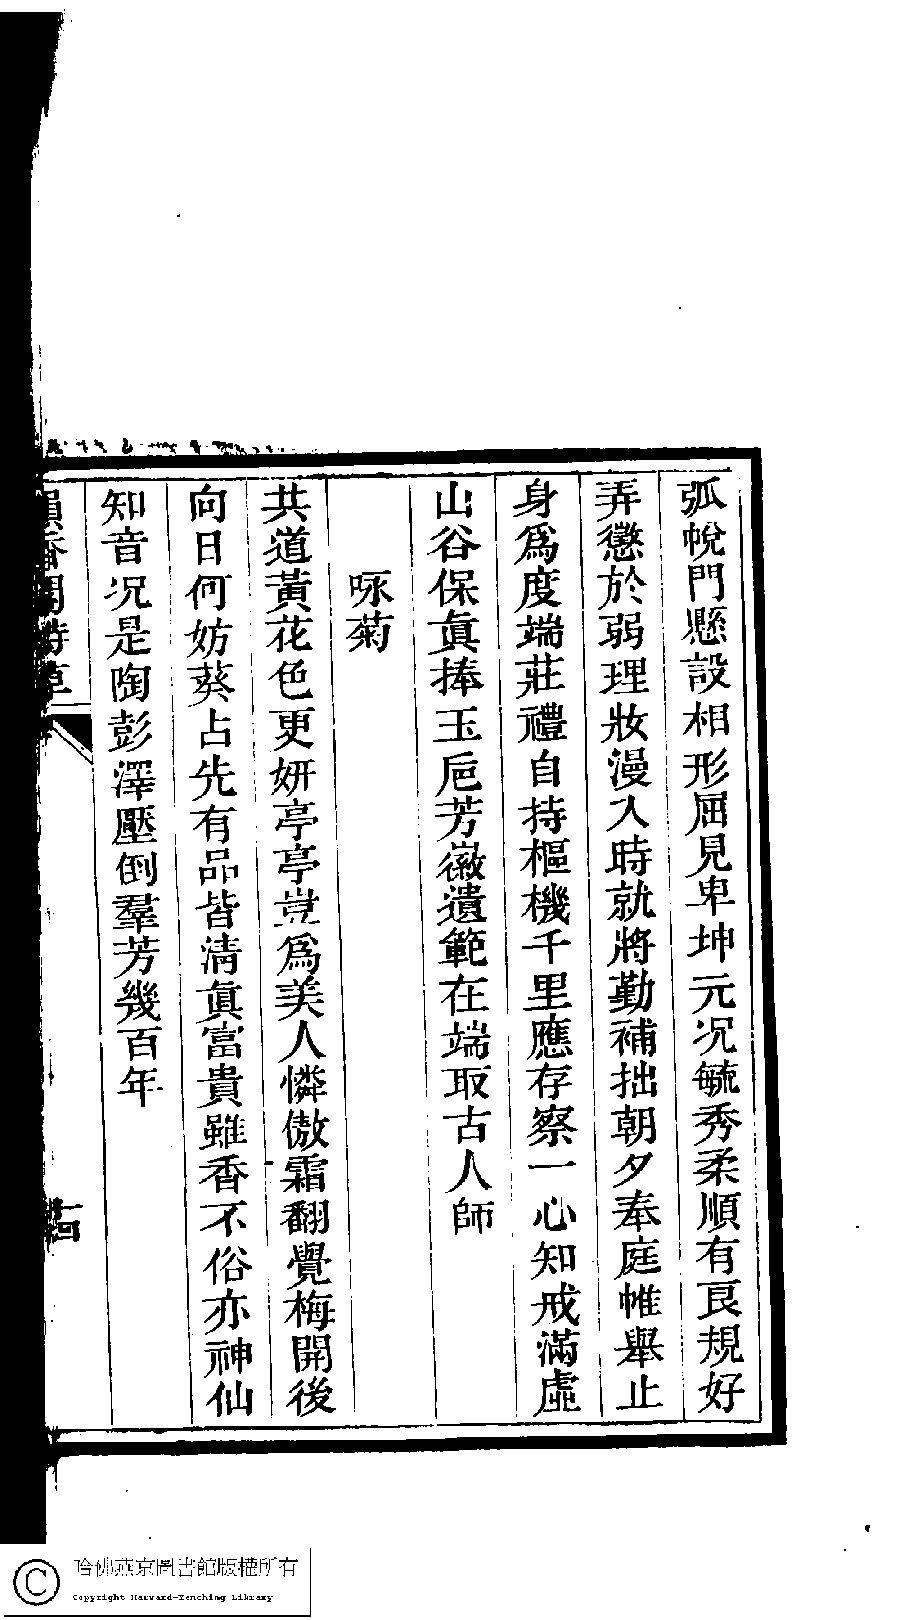 弧帨門懸設相形屈見卑坤元况毓秀柔順有良規好
弄懲於弱理妝漫入時就將勤補拙朝夕奉庭帷舉止
身爲度端莊禮自持樞機千里應存察一心知戒滿虛
山谷保眞捧玉巵芳徽遺範在端取古人師
咏菊
共道黃花色更妍亭亭豈爲美人憐傲霜翻覺梅開後
向日何妨葵占先有品皆淸眞富貴雖香不俗亦神仙
知音况是陶彭澤壓倒羣芳幾百年
韻香閣詩草
十四
哈佛燕京圖書館版權所有
Copyright Harvard-Yenching Library